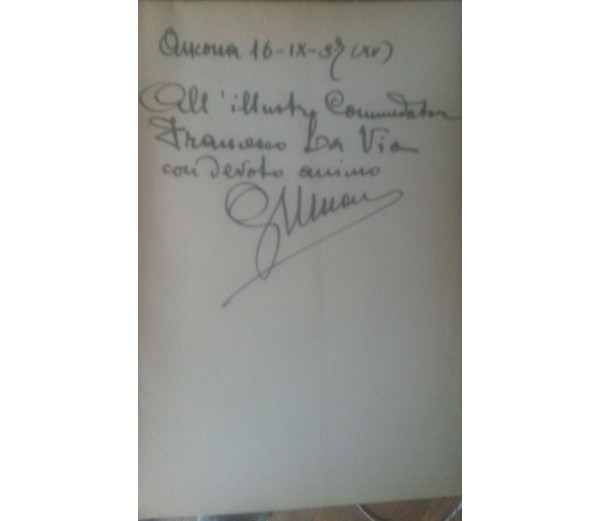 Ancona 16-IX-37 (XV)
All'illustre Commendator
Francesco La Via
con devoto animo